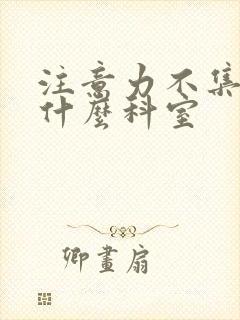 注意力不集
什麼科室
卿畫扇